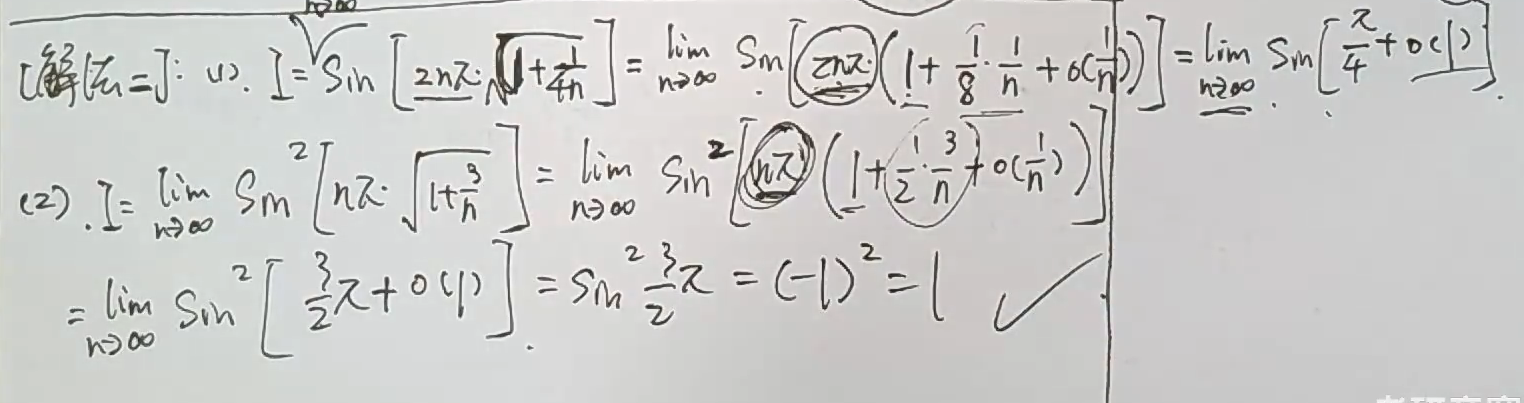 n→∞
[解法二]: (1). I = Sin[2nπ·√(1+1/4n)] = lim n→∞ Sin[2nπ·(1+1/8·1/n+o(1/n))] = lim n→∞ Sin[π/4+o(1)].
(2). I = lim n→∞ Sin²[nπ·√(1+3/n)] = lim n→∞ Sin²[nπ(1+1/2·3/n+o(1/n))]
= lim n→∞ Sin²[3/2π+o(1)] = Sin²3/2π = (-1)² = 1 ✓